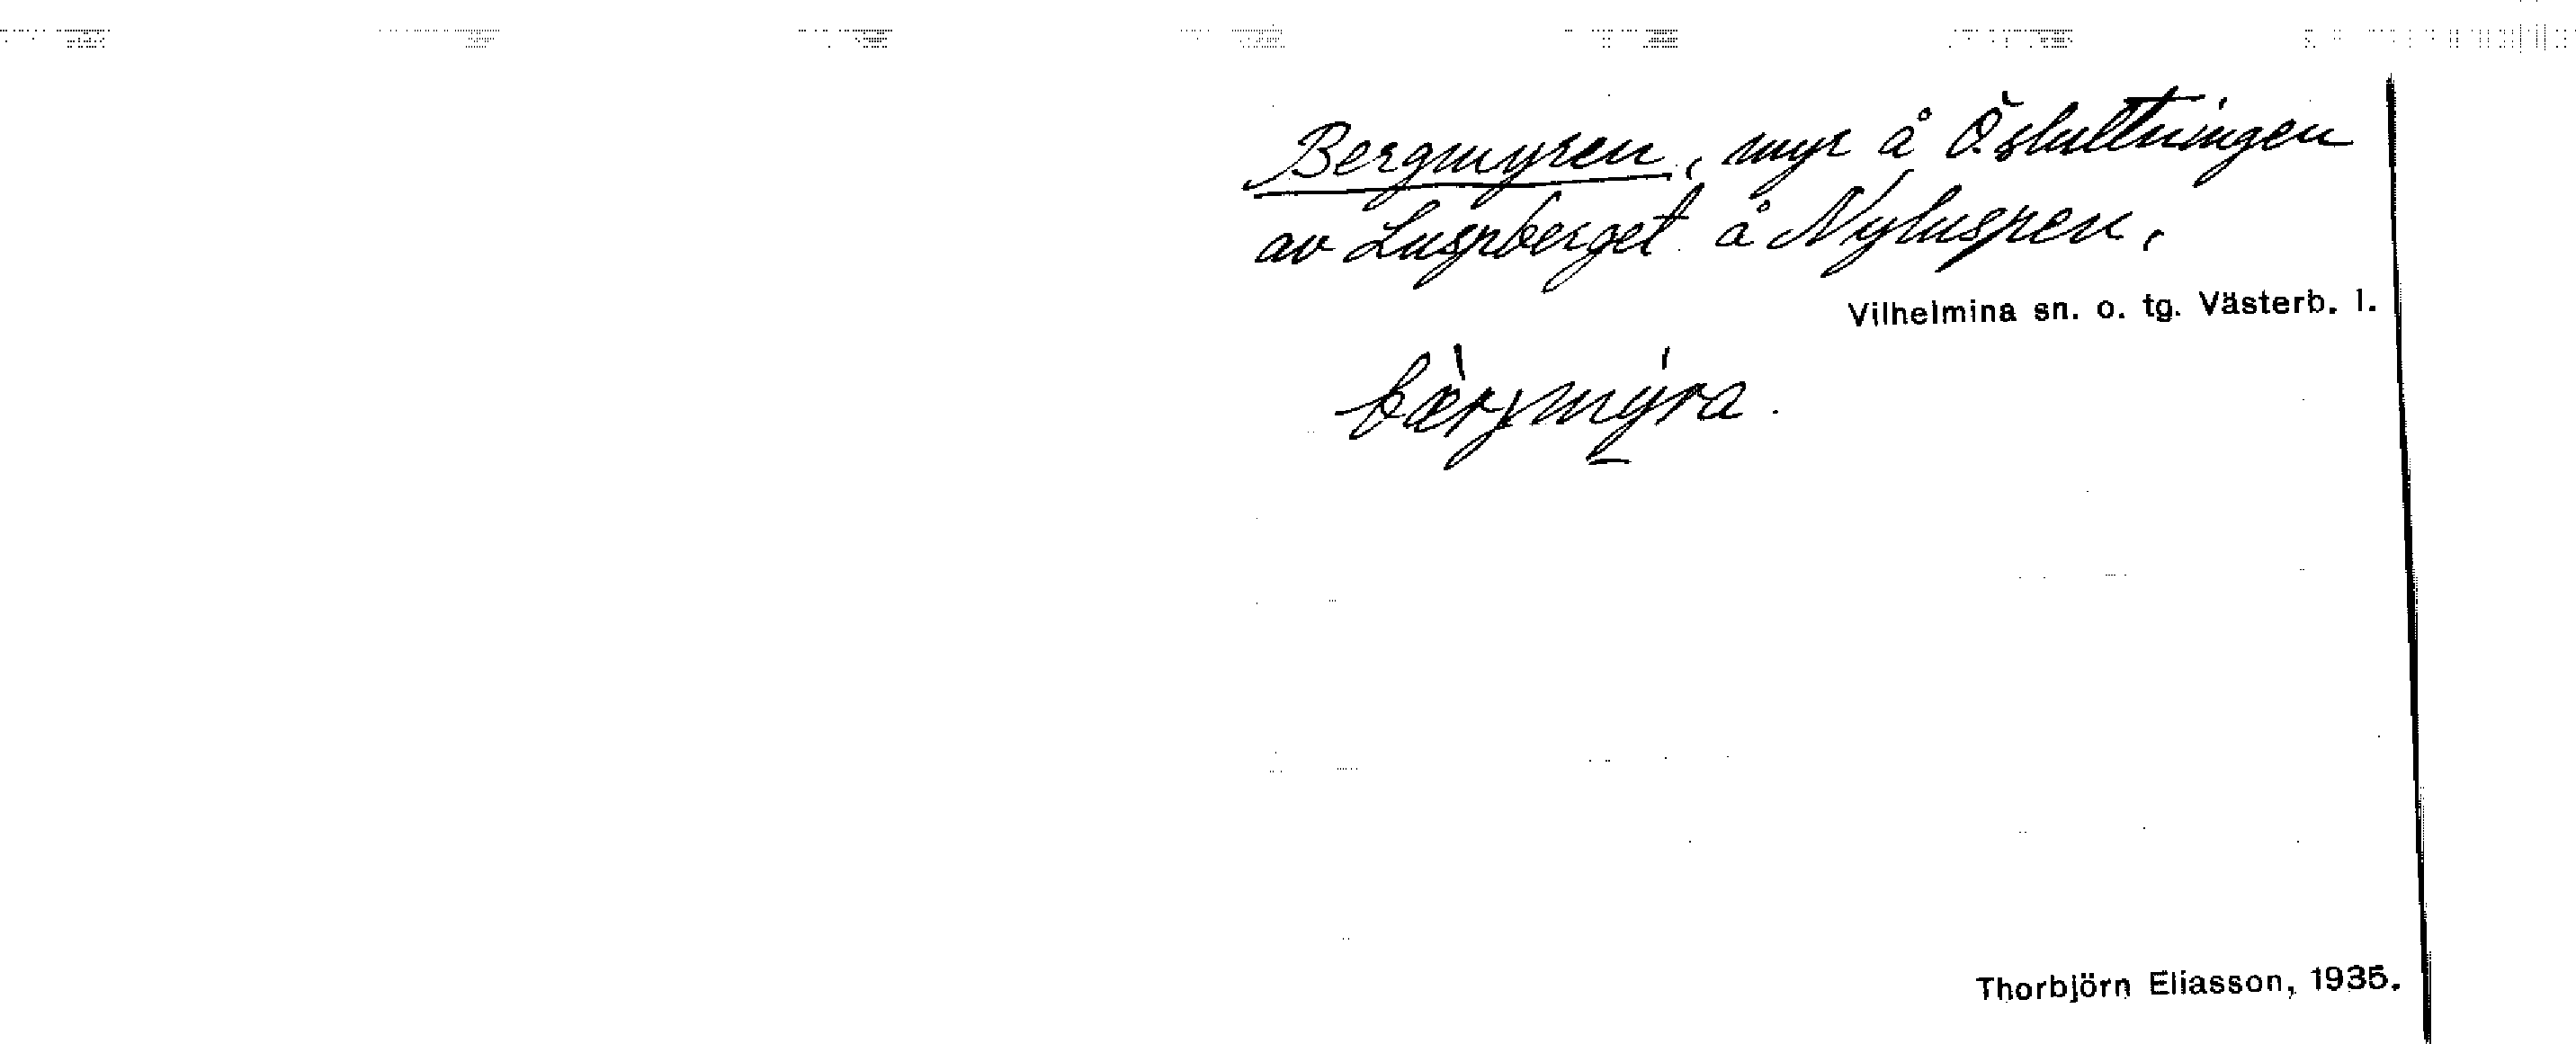 Bergmyren, myr å Ö.sluttningen
av Luspberget å Nyluspen,
Vilhelmina sn. o. tg. Västerb. l.
bærjmyra.
Thorbjörn Eliasson, 1935.